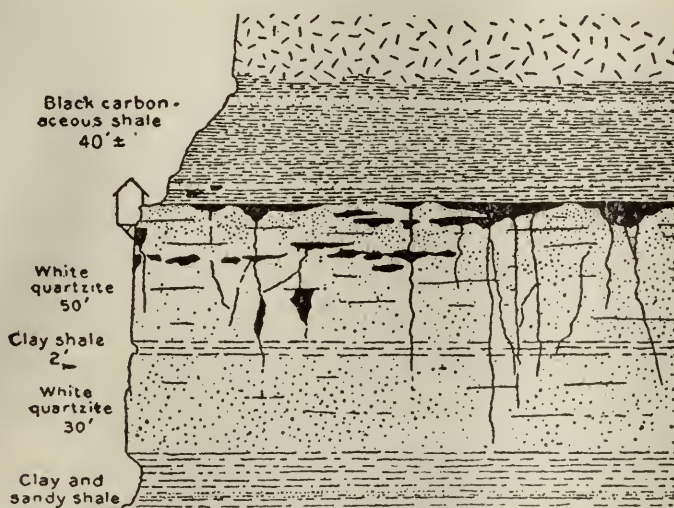 Black carbon-
aceous shale
40'±
White
quartzite
50'
Clay shale
2'
White
quartzite
30'
Clay and
sandy shale